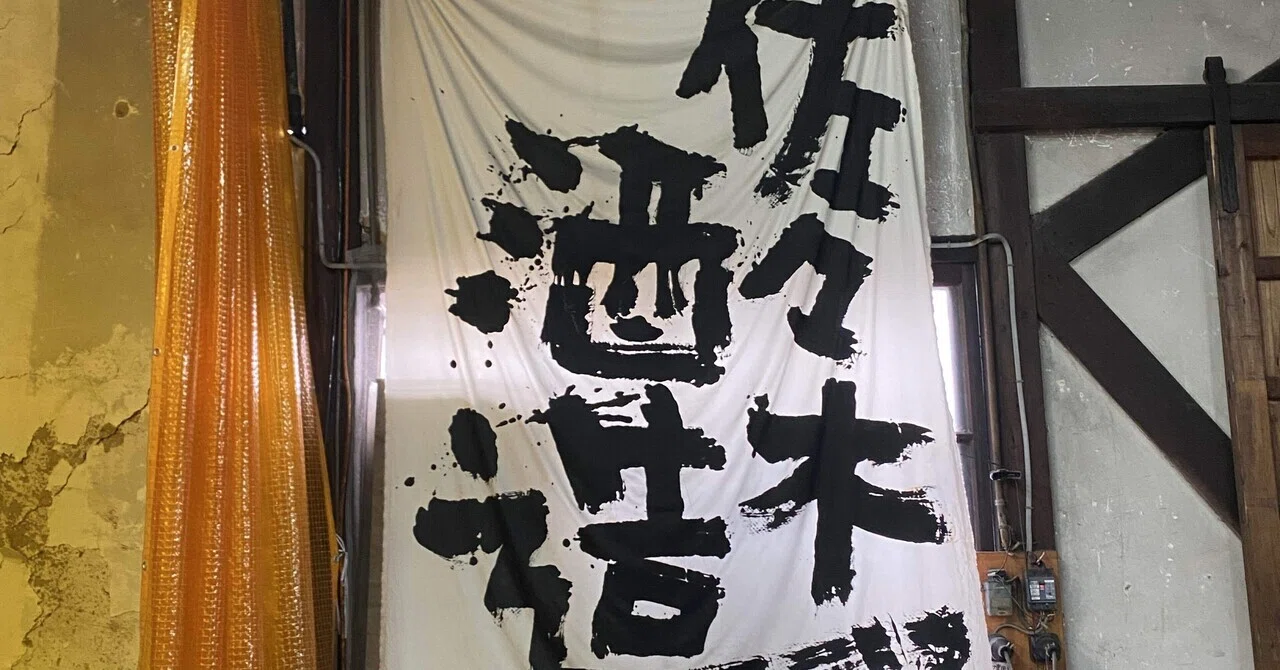 佐々木
酒造